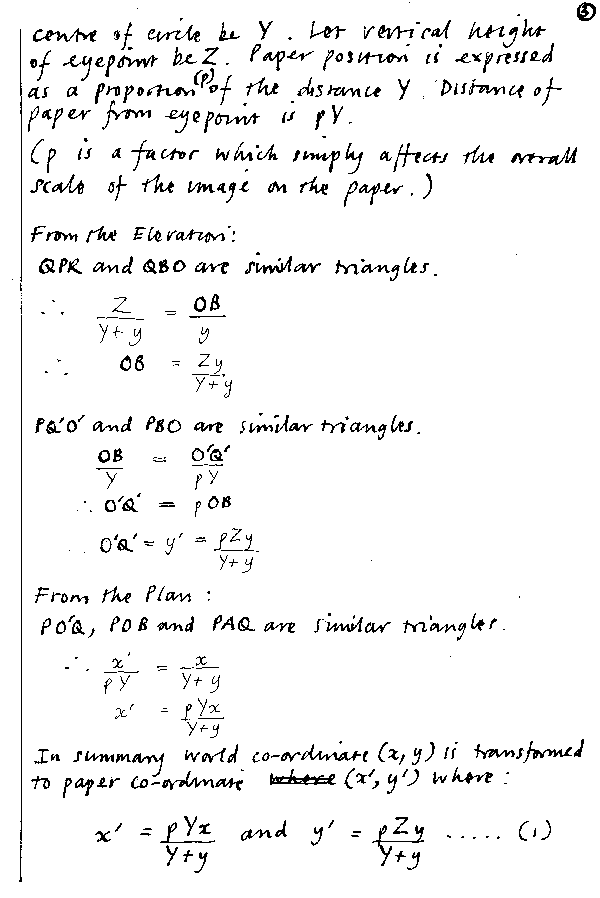 ③
centre of circle be Y. Let vertical height
of eyepoint be Z. Paper position is expressed
as a proportion (p) of the distance Y. Distance of
paper from eyepoint is pY.
(p is a factor which simply affects the overall
scale of the image on the paper.)
From the Elevation:
QPR and QBO are similar triangles.
∴ Z/(Y+y) = OB/y
∴ OB = Zy/(Y+y)
PQ'O' and PBO are similar triangles.
OB/Y = O'Q'/pY
∴ O'Q' = pOB
∴ O'Q' = y' = pZy/(Y+y)
From the Plan:
PO'Q, POB and PAQ are similar triangles.
∴ x'/pY = x/(Y+y)
x' = pYx/(Y+y)
In summary world co-ordinate (x, y) is transformed
to paper co-ordinate where (x', y') where:
x' = pYx/(Y+y) and y' = pZy/(Y+y) ..... (1)